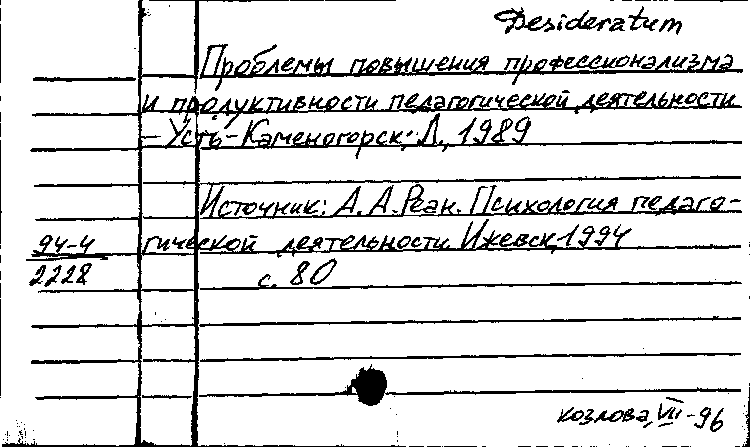 Desideratum
Проблемы повышения профессионализма
и продуктивности педагогической деятельности
– Усть-Каменогорск; Л., 1989
Источник: А. А. Реан. Психология педаго-
94-4 гической деятельности Ижевск, 1994
2228 с. 80
козлова, VII-96